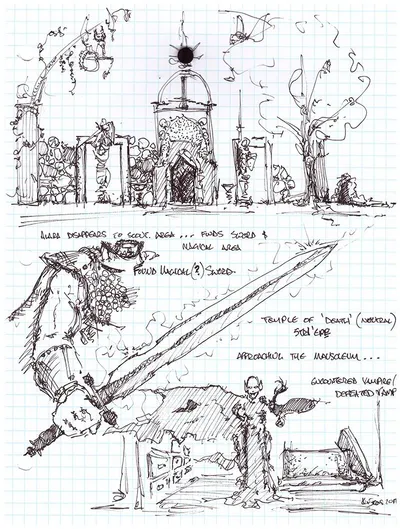 ALARA DISAPPEARS TO SCOUT AREA ... FINDS SWORD &
MAGICAL AREA
FOUND MAGICAL (?) SWORD.
TEMPLE OF 'DEATH' (NEUTRAL)
APPROACHING THE MAUSOLEUM ...
ENCOUNTERED VAMPIRE/
DEFEATED VAMP